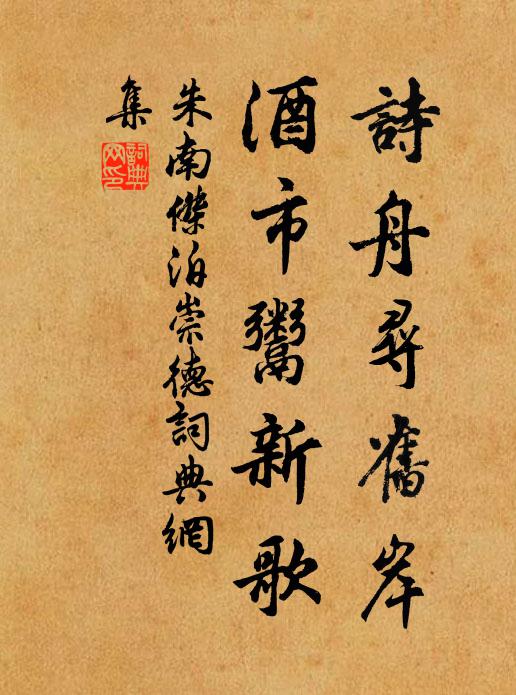 詩舟尋舊岸
酒市鬻新歌
朱南傑泊崇德詞典網
集
詞典